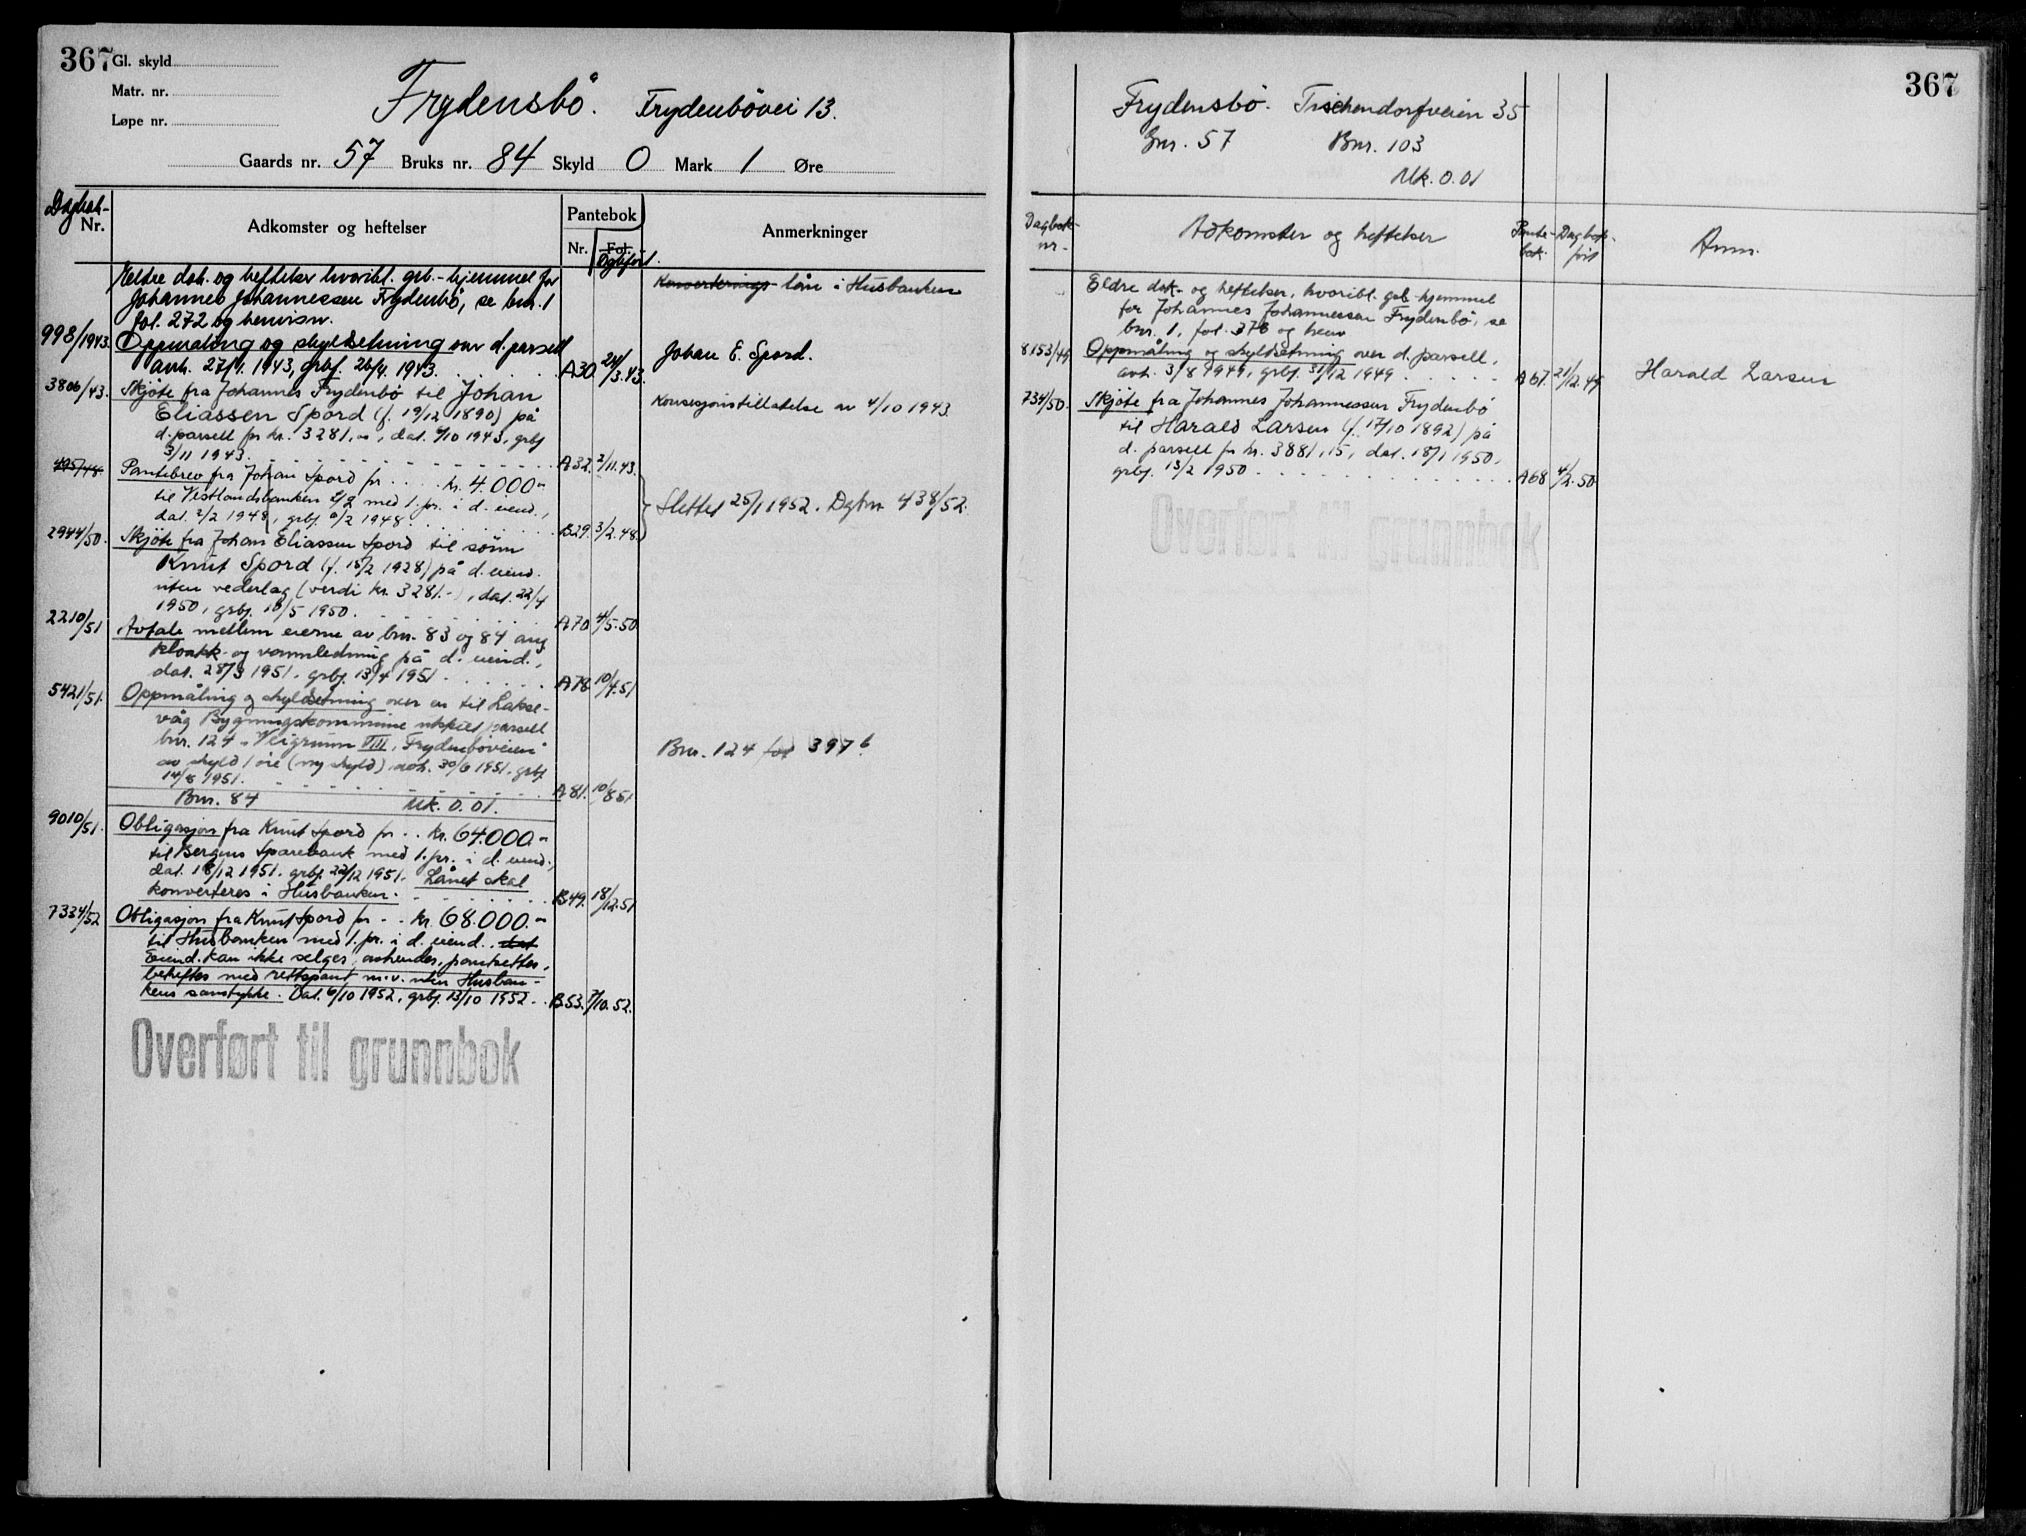 367
Gl. skyld
Matr. nr.
Løpe nr.
Frydensbö. Frydenbövei 13.
Gaards nr. 57 Bruks nr. 84 Skyld 0 Mark 1 Øre
Dagbok-
Nr.
Adkomster og heftelser
Pantebok
Nr. Fol.
Dgbført.
Anmerkninger
Eldre dok. og heftelser hvoribl. grb.-hjemmel for
Johannes Johannessen Frydenbö, se bnr. 1
fol. 272 og henvisn.
Konverterings lån i Husbanken
998/1943. Oppmåling og skyldsetning over d. parsell
avh. 27/1. 1943, grbf. 26/4. 1943. A30 24/3.43. Johan E. Spord.
3806/43. Skjöte fra Johannes Frydenbö til Johan
Eliassen Spord (f. 19/12 1890) på
d. parsell for kr. 3281,00, dat. 4/10 1943, grbf
3/11 1943. A32. 2/11.43.
Konsesjonstillatelse av 4/10 1943
495/48. Pantebrev fra Johan Spord for kr. 4.000,-
til Vestlandsbanken A/S med 1. pr. i d. eiend.,
dat. 2/2 1948, grbf. 6/2 1948. B29. 3/2.48.
Slettet 25/1 1952. Dgbnr 438/52.
2944/50. Skjöte fra Johan Eliassen Spord til sönn
Knut Spord (f. 18/2 1928) på d. eiend.
uten vederlag (verdi kr. 3281.-), dat. 22/4
1950, grbf. 16/5 1950. A70 4/5.50.
2210/51 Avtale mellem eierne av bnr. 83 og 84 ang
kloakk- og vannledning på d. eiend.,
dat. 28/3 1951, grbf. 13/4 1951. A78. 10/4.51
5421/51. Oppmåling og skyldsetning over en til Lakse-
våg Bygningskommune utskilt parsell
bnr. 124 „Veigrunn VIII, Frydenböveien"
av skyld 1 öre (ny skyld) avh. 30/6 1951, grbf.
14/8 1951. A81. 10/8 51
Bnr. 124 fol 397 b.
Bnr. 84 Mk. 0.01.
9010/51. Obligasjon fra Knut Spord for kr. 64.000,-
til Bergens Sparebank med 1. pr. i d. eiend.,
dat. 18/12 1951, grbf. 22/12 1951. Lånet skal
konverteres i Husbanken. B49. 18/12.51
7334/52 Obligasjon fra Knut Spord for kr. 68.000.-
til Husbanken med 1. pr. i d. eiend. dat
Eiend. kan ikke selges, avhendes, pantsettes,
beheftes med rettspant m.v. uten Husban-
kens samtykke. Dat. 6/10 1952, grbf. 13/10 1952. B53. 7/10.52.
Overført til grunnbok
367
Frydensbö. Tischendorfveien 35
Gnr. 57 Bnr. 103
Mk. 0.01
Dagbok-
nr.
Adkomster og heftelser
Pante-
bok.
Dagbok-
fört
Anm.
Eldre dok- og heftelser, hvoribl. grb-hjemmel
for Johannes Johannessen Frydenbö, se
bnr. 1, fol. 378 og henv
8153/49 Oppmåling og skyldsetning over d. parsell,
avh. 3/8 1949, grbf. 31/12 1949. A67. 21/12.49. Harald Larsen
734/50. Skjöte fra Johannes Johannessen Frydenbö
til Harald Larsen (f. 17/10 1892) på
d. parsell for kr. 3881,15, dat. 18/1 1950,
grbf. 13/2 1950. A68 4/2.50.
Overført til grunnbok